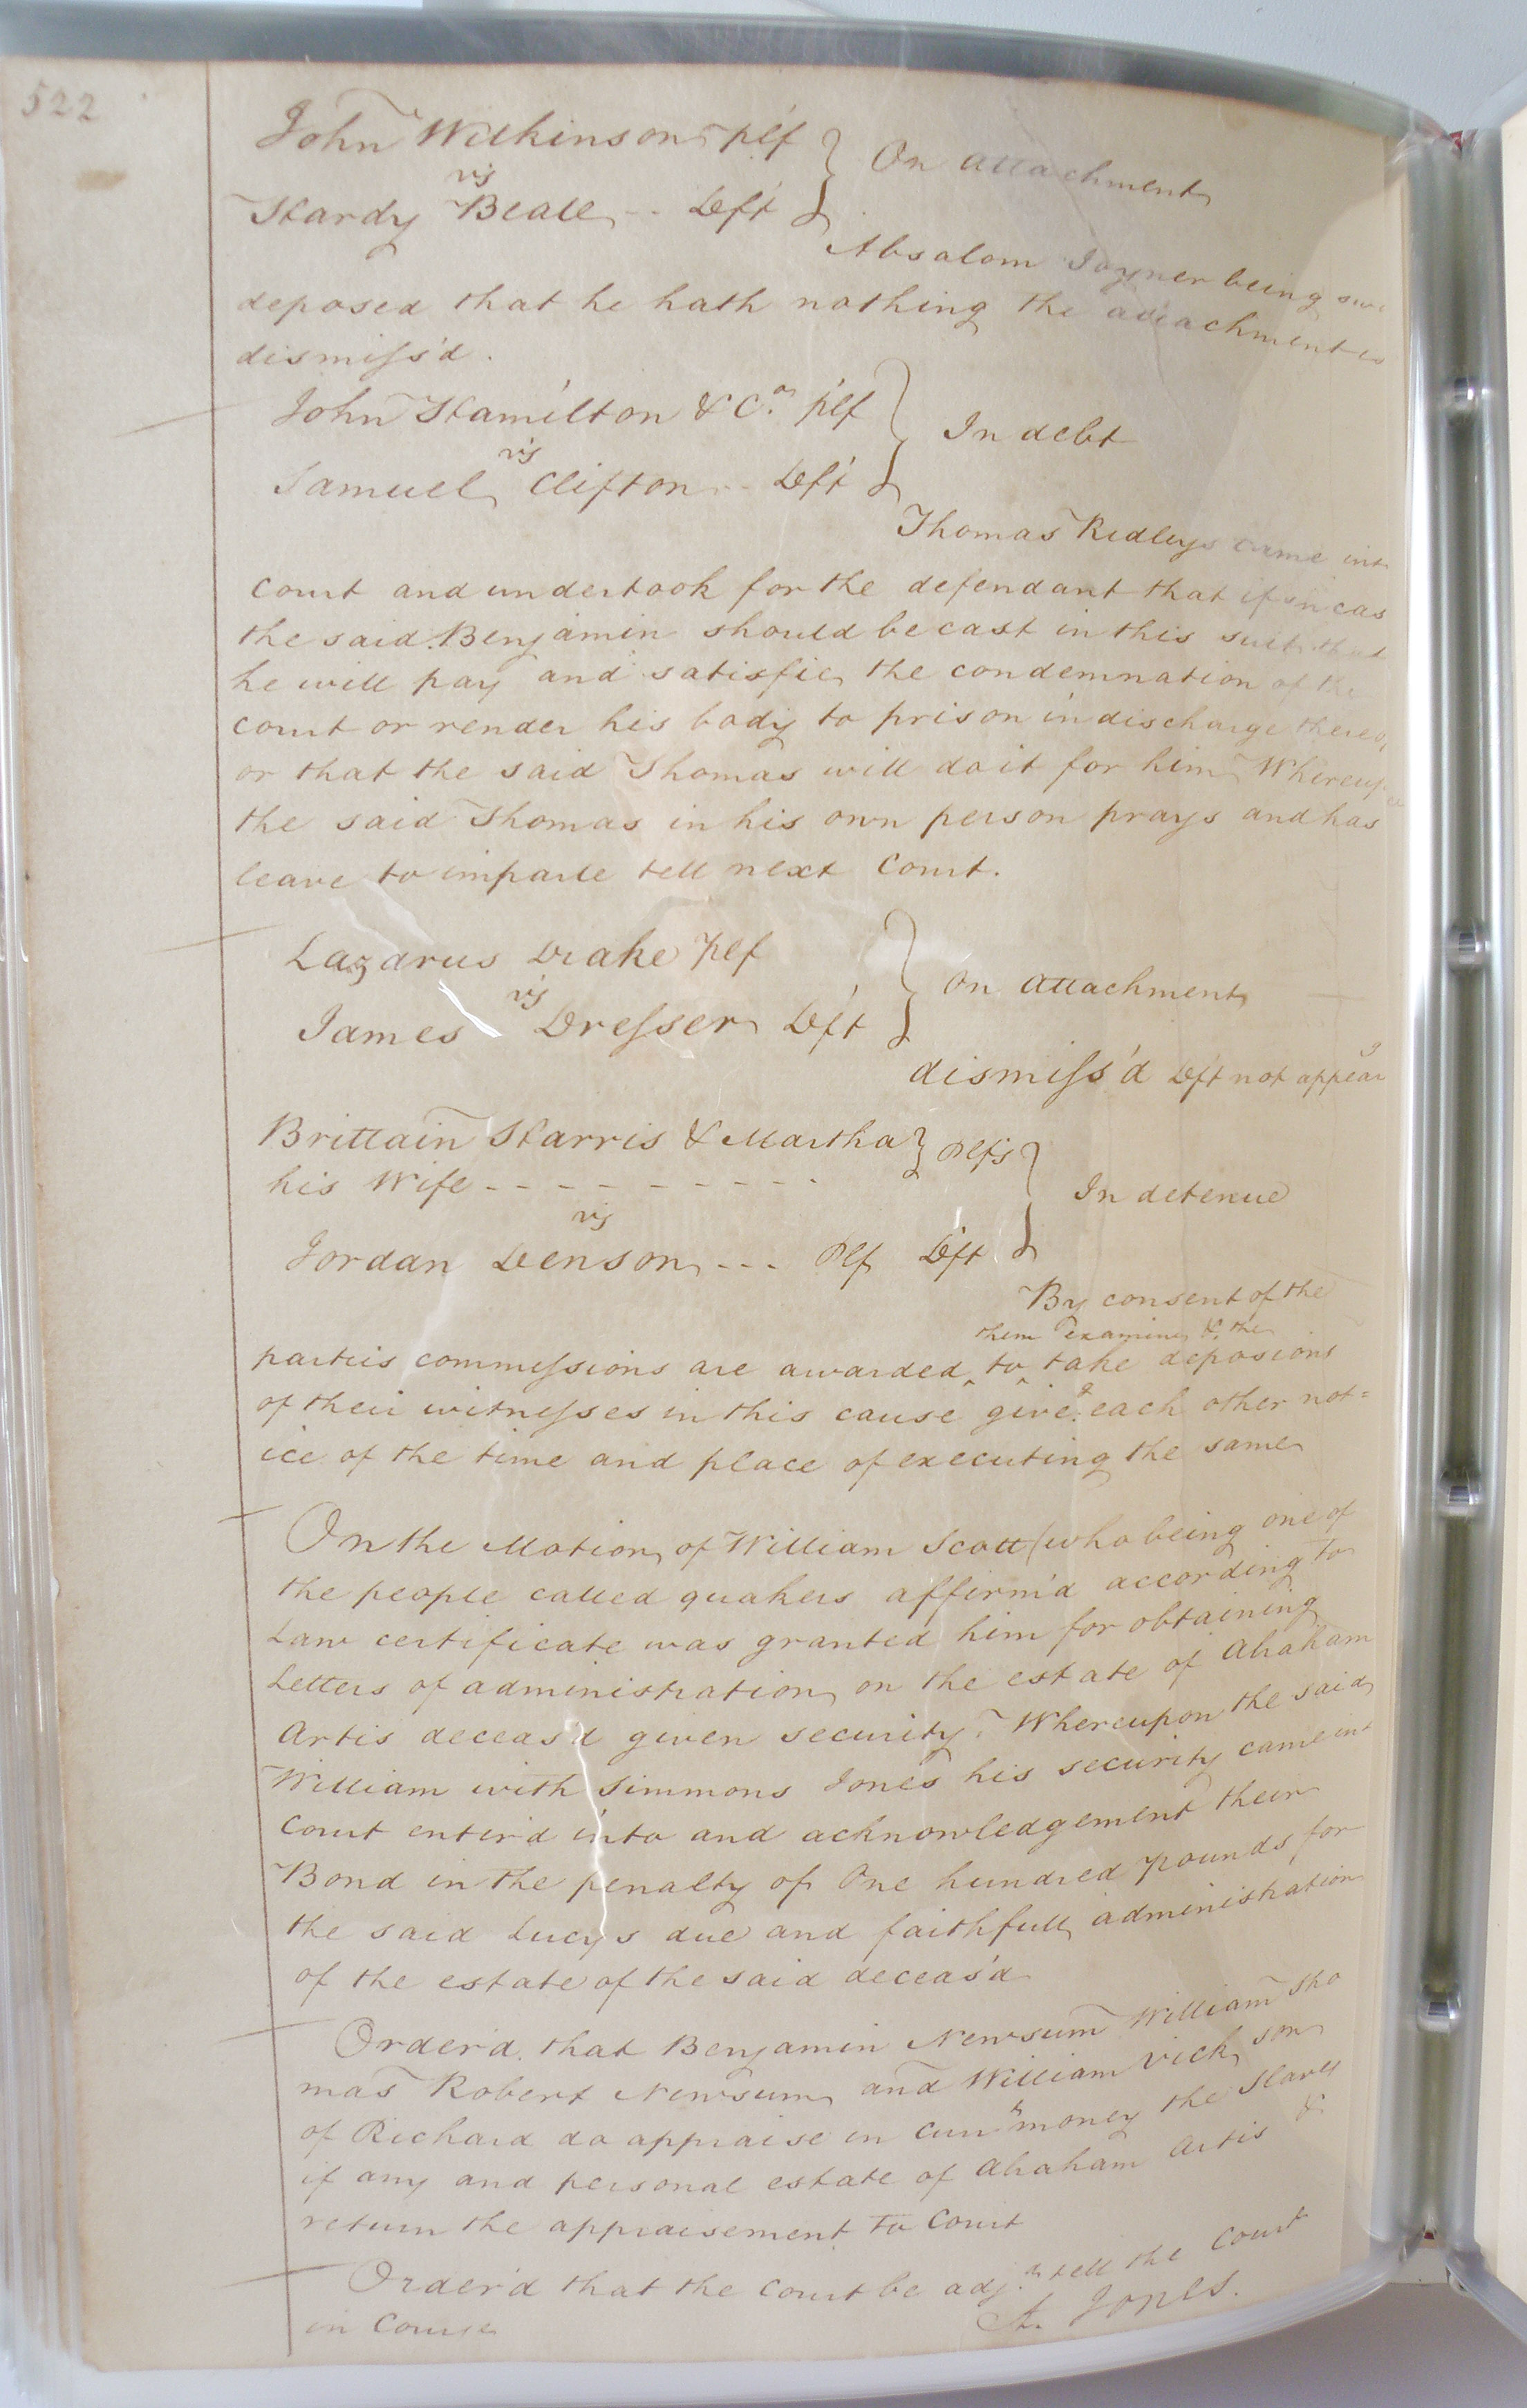 522
John Wilkinson plf } On attachment
vs
Hardy Beall -- Deft
Absalom Joyner being
deposed that he hath nothing the attachment is
dismiss'd.
John Hamilton & Co. plf } In debt
vs
Samuel Clifton -- Deft
Thomas Ridley came int
Court and undertook for the defendant that if in cas
the said Benjamin should be cast in this suit that
he will pay and satisfie the condemnation of the
court or render his body to prison in discharge thereof
or that the said Thomas will do it for him Whereup
the said Thomas in his own person prays and has
leave to imparle tell next Court.
Lazarus Drake plf } On attachment
vs
James Dresser Deft
dismiss'd Deft not appearg
Brittain Harris & Martha } plfs } In detenue
his Wife - - - - - - - - - -
vs
Jordan Denson --- plf Deft
By consent of the
them examine & the
parteis commissions are awarded to take deposions
of their witnesses in this cause giveg each other not=
ice of the time and place of executing the same
On the Motion of William Scott (who being one of
the people called quakers affirm'd according to
Law certificate was granted him for obtaining
Letters of administration on the estate of Abraham
Artis deceas'd given security. Whereupon the said
William with Simmons Jones his security came int
Court enter'd into and acknowledgement their
Bond in the penalty of One hundred pounds for
the said Lucys due and faithfull administration
of the estate of the said deceas'd
Order'd that Benjamin Newsum William Tho
mas Robert Newsum and William Vick son
of Richard do appraise in Curr.t money the Slaves
if any and personal estate of Abraham Artis &
return the appraisement to Court
Order'd that the Court be adj.n tell the Court
in Course
A. Jones.